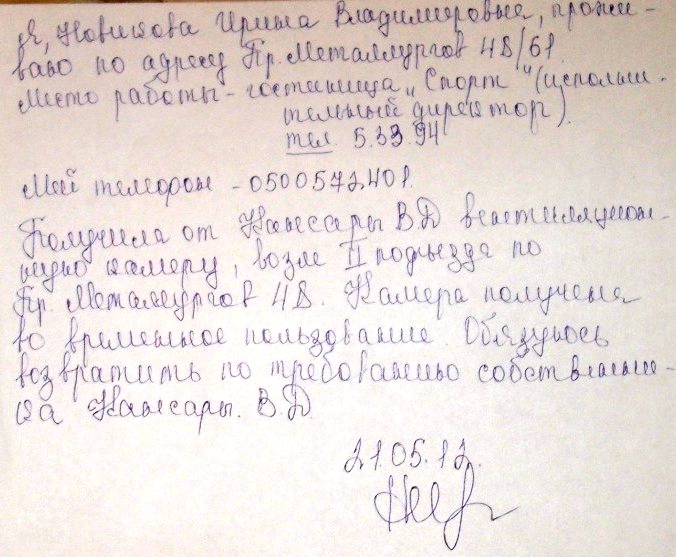 Я, Новикова Ирина Владимировна, прожи-
ваю по адресу Пр. Металлургов 48/61.
Место работы - гостиница „Спорт" (исполни-
тельный директор).
тел. 5.33.94
Мой телефон - 0500572401.
Получила от Кансары ВД вентиляцион-
ную камеру, возле II подъезда по
Пр. Металлургов 48. Камера получена
во временное пользование. Обязуюсь
возвратить по требованию собственни-
ка Кансары. В.Д
21.05.12.